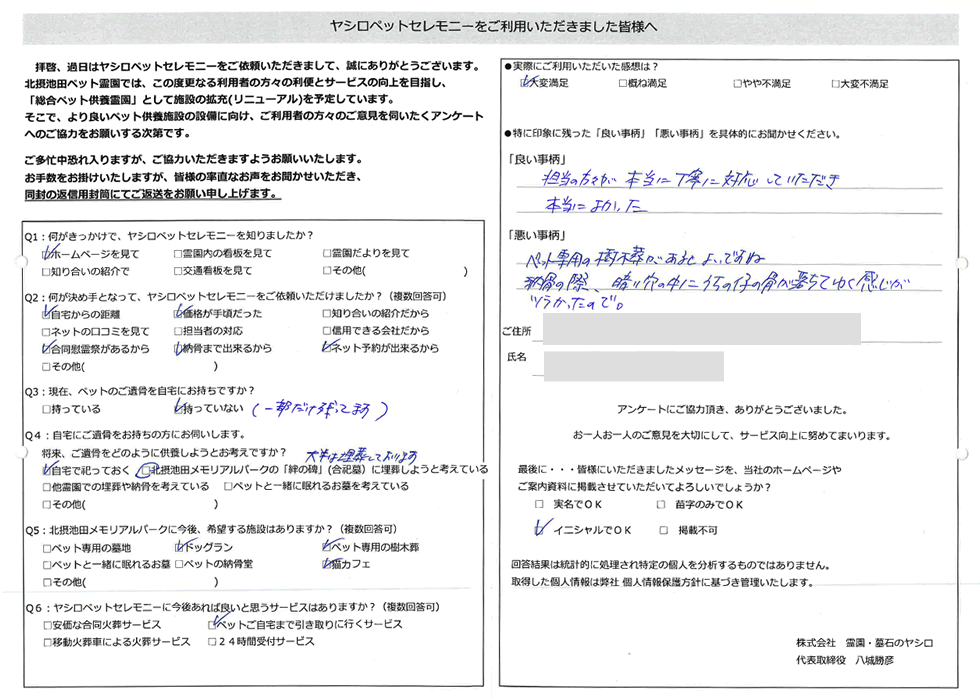 ヤシロペットセレモニーをご利用いただきました皆様へ
拝啓、過日はヤシロペットセレモニーをご依頼いただきまして、誠にありがとうございます。
北摂池田ペット霊園では、この度更なる利用者の方々の利便とサービスの向上を目指し、
「総合ペット供養霊園」として施設の拡充(リニューアル)を予定しています。
そこで、より良いペット供養施設の設備に向け、ご利用者の方々のご意見を伺いたくアンケート
へのご協力をお願いする次第です。
ご多忙中恐れ入りますが、ご協力いただきますようお願いいたします。
お手数をお掛けいたしますが、皆様の率直なお声をお聞かせいただき、
同封の返信用封筒にてご返送をお願い申し上げます。
Q1：何がきっかけで、ヤシロペットセレモニーを知りましたか？
☑ホームページを見て □霊園内の看板を見て □霊園だよりを見て
□知り合いの紹介で □交通看板を見て □その他( )
Q2：何が決め手となって、ヤシロペットセレモニーをご依頼いただけましたか？（複数回答可）
☑自宅からの距離 ☑価格が手頃だった □知り合いの紹介だから
□ネットの口コミを見て □担当者の対応 □信用できる会社だから
☑合同慰霊祭があるから ☑納骨まで出来るから ☑ネット予約が出来るから
□その他( )
Q3：現在、ペットのご遺骨を自宅にお持ちですか？
□持っている ☑持っていない (一部だけ残ってます)
Q4：自宅にご遺骨をお持ちの方にお伺いします。
将来、ご遺骨をどのように供養しようとお考えですか？ 大半は埋葬しております
☑自宅で祀っておく □北摂池田メモリアルパークの「絆の碑」(合祀墓）に埋葬しようと考えている
□他霊園での埋葬や納骨を考えている □ペットと一緒に眠れるお墓を考えている
□その他( )
Q5：北摂池田メモリアルパークに今後、希望する施設はありますか？（複数回答可）
□ペット専用の墓地 ☑ドッグラン ☑ペット専用の樹木葬
□ペットと一緒に眠れるお墓 □ペットの納骨堂 ☑猫カフェ
□その他( )
Q６：ヤシロペットセレモニーに今後あれば良いと思うサービスはありますか？（複数回答可）
□安価な合同火葬サービス ☑ペットご自宅まで引き取りに行くサービス
□移動火葬車による火葬サービス □２４時間受付サービス
●実際にご利用いただいた感想は？
☑大変満足 □概ね満足 □やや不満足 □大変不満足
●特に印象に残った「良い事柄」「悪い事柄」を具体的にお聞かせください。
「良い事柄」
担当の方々が本当に丁寧に対応していただき
本当によかった
「悪い事柄」
ペット専用の樹木葬があるとよいですね
納骨の際、暗い穴の中にうちの仔の骨が落ちてゆく感じが
ツラかったので。
ご住所
氏名
アンケートにご協力頂き、ありがとうございました。
お一人お一人のご意見を大切にして、サービス向上に努めてまいります。
最後に・・・皆様にいただきましたメッセージを、当社のホームページや
ご案内資料に掲載させていただいてよろしいでしょうか？
□ 実名でＯＫ □ 苗字のみでＯＫ
☑ イニシャルでＯＫ □ 掲載不可
回答結果は統計的に処理され特定の個人を分析するものではありません。
取得した個人情報は弊社 個人情報保護方針に基づき管理いたします。
株式会社 霊園・墓石のヤシロ
代表取締役 八城勝彦